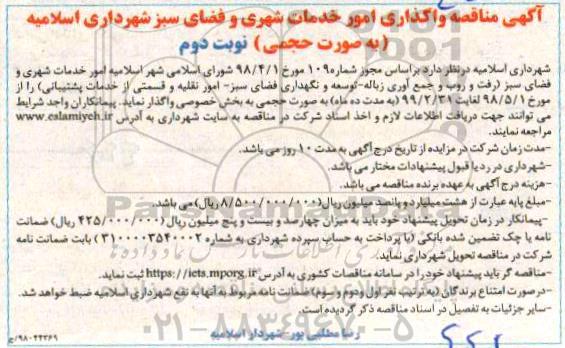 آگهی مناقصه واگذاری امور خدمات شهری و فضای سبز شهرداری اسلامیه
(به صورت حجمی) نوبت دوم
شهرداری اسلامیه درنظر دارد براساس مجوز شماره ۱۰۹ مورخ ۹۸/۴/۱ شورای اسلامی شهر اسلامیه امور خدمات شهری و
فضای سبز (رفت و روب و جمع آوری زباله-توسعه و نگهداری فضای سبز- امور نقلیه و قسمتی از خدمات پشتیبانی) را از
مورخ ۹۸/۵/۱ لغایت ۹۹/۲/۳۱ (به مدت ده ماه) به صورت حجمی به بخش خصوصی واگذار نماید. پیمانکاران واجد شرایط
می توانند جهت دریافت اطلاعات لازم و اخذ اسناد شرکت در مناقصه به سایت شهرداری به آدرس www.eslamiyeh.ir
مراجعه نمایند.
-مدت زمان شرکت در مزایده از تاریخ درج آگهی به مدت ۱۰ روز می باشد.
-شهرداری در رد یا قبول پیشنهادات مختار می باشد.
-هزینه درج آگهی به عهده برنده مناقصه می باشد.
-مبلغ پایه عبارت از هشت میلیارد و پانصد میلیون ریال(۸/۵۰۰/۰۰۰/۰۰۰ ریال) می باشد.
-پیمانکار در زمان تحویل پیشنهاد خود باید به میزان چهارصد و بیست و پنج میلیون ریال (۴۲۵/۰۰۰/۰۰۰ ریال) ضمانت
نامه یا چک تضمین شده بانکی (یا پرداخت به حساب سپرده شهرداری به شماره ۳۱۰۰۰۰۳۵۴۰۰۰۲) بابت ضمانت نامه
شرکت در مناقصه تحویل شهرداری نماید.
-مناقصه گر باید پیشنهاد خود را در سامانه مناقصات کشوری به آدرس https://iets.mporg.ir ثبت نماید.
-درصورت امتناع برندگان (به ترتیب نفر اول ودوم و سوم) ضمانت نامه مربوط به آنها به نفع شهرداری اسلامیه ضبط خواهد شد.
-سایر جزئیات به تفصیل در اسناد مناقصه ذکر گردیده است.
رضا مطلبی پور-شهردار اسلامیه
۹۸۰۴۴۳۶۹/ج
۰۲۱-۸۸۳۴۹۶۷۰-۵